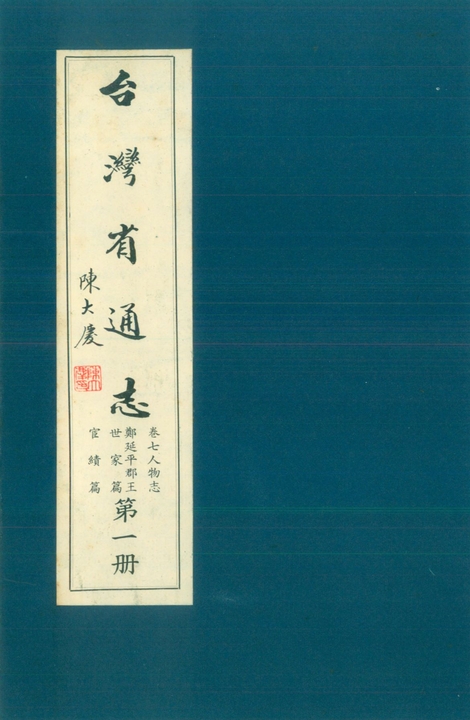 台灣省通志
陳大慶
卷七人物志
鄭延平郡王
世家篇
宦績篇
第一册